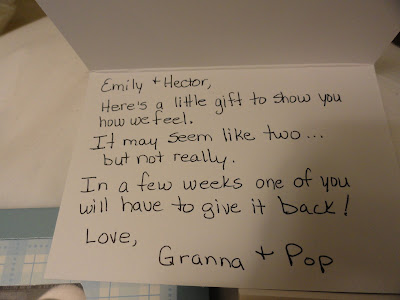 Emily + Hector,
Here's a little gift to show you
how we feel.
It may seem like two...
but not really.
In a few weeks one of you
will have to give it back!
Love,
Granna + Pop